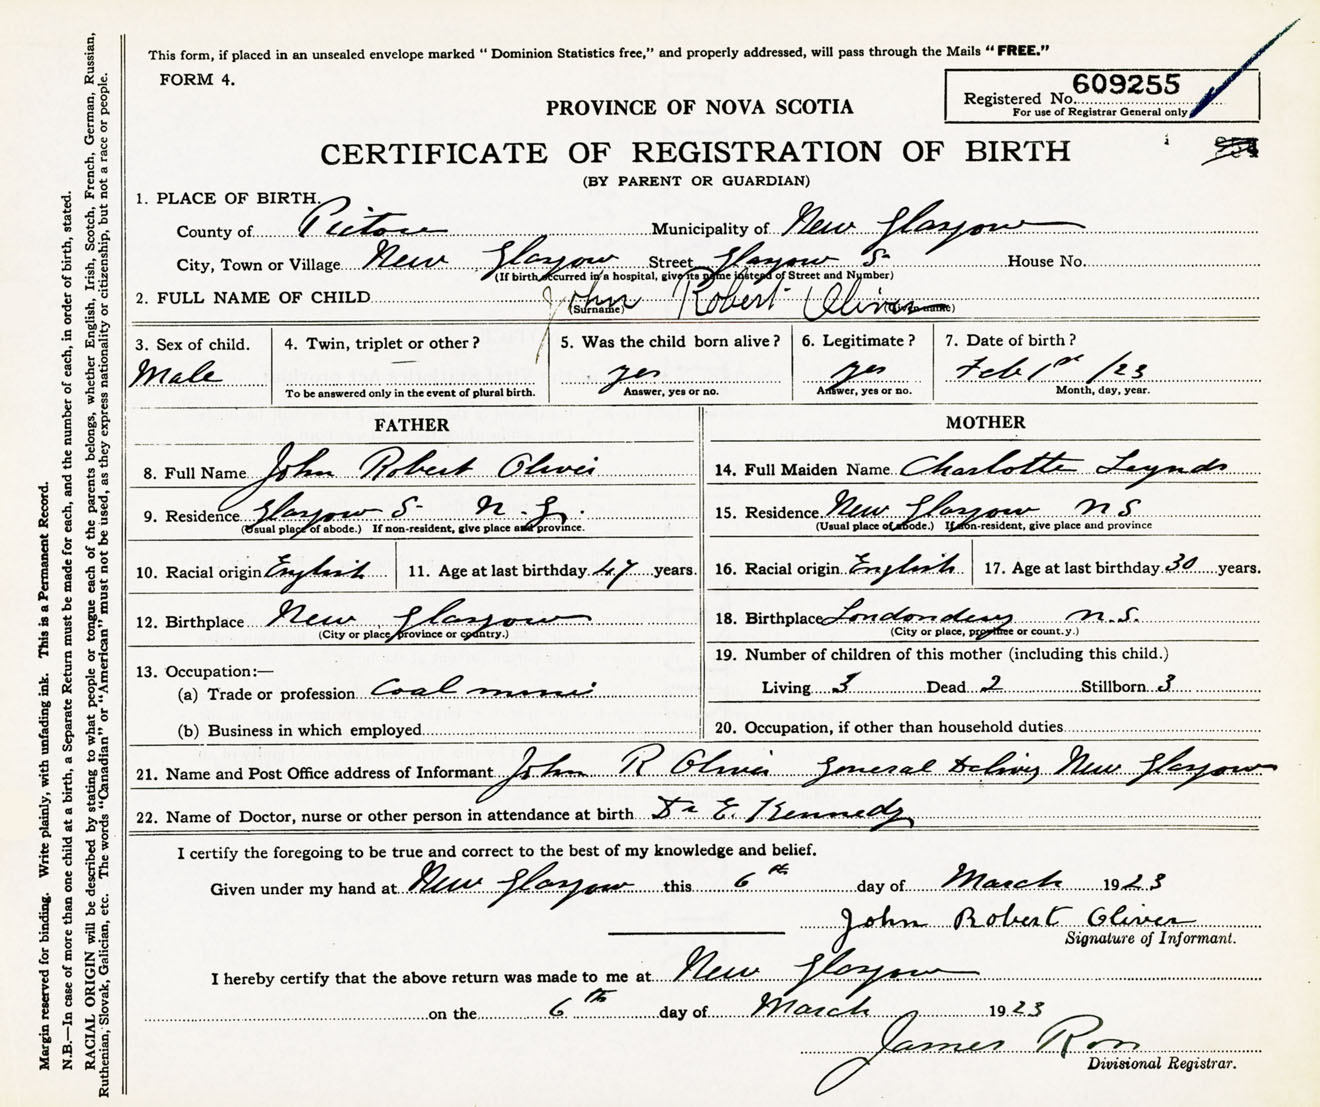 This form, if placed in an unsealed envelope marked “ Dominion Statistics free,” and properly addressed, will pass through the Mails “ FREE.”
FORM 4.
Registered No. 609255
For use of Registrar General only
PROVINCE OF NOVA SCOTIA
CERTIFICATE OF REGISTRATION OF BIRTH
(BY PARENT OR GUARDIAN)
1. PLACE OF BIRTH.
County of Pictou Municipality of New Glasgow
City, Town or Village New Glasgow Street Glasgow S. House No.
(If birth occurred in a hospital, give its name instead of Street and Number)
2. FULL NAME OF CHILD John Robert Oliver
(Surname) (Given name)
3. Sex of child. 4. Twin, triplet or other ? 5. Was the child born alive ? 6. Legitimate ? 7. Date of birth ?
Male — yes yes Feb 1st /23
To be answered only in the event of plural birth. Answer, yes or no. Answer, yes or no. Month, day, year.
FATHER
8. Full Name John Robert Oliver
9. Residence Glasgow S. N. G.
(Usual place of abode.) If non-resident, give place and province.
10. Racial origin English 11. Age at last birthday 47 years.
12. Birthplace New Glasgow
(City or place, province or country.)
13. Occupation:—
(a) Trade or profession Coal
(b) Business in which employed
MOTHER
14. Full Maiden Name Charlotte Leynds
15. Residence New Glasgow NS
(Usual place of abode.) If non-resident, give place and province
16. Racial origin English 17. Age at last birthday 30 years.
18. Birthplace Londonderry N.S.
(City or place, province or count.y.)
19. Number of children of this mother (including this child.)
Living 3 Dead 2 Stillborn 3
20. Occupation, if other than household duties
21. Name and Post Office address of Informant John R Oliver General Delivery New Glasgow
22. Name of Doctor, nurse or other person in attendance at birth Dr E. Kennedy
I certify the foregoing to be true and correct to the best of my knowledge and belief.
Given under my hand at New Glasgow this 6th day of March 1923
John Robert Oliver
Signature of Informant.
I hereby certify that the above return was made to me at New Glasgow
on the 6th day of March 1923
James
Divisional Registrar.
Margin reserved for binding. Write plainly, with unfading ink. This is a Permanent Record.
N.B.—In case of more than one child at a birth, a Separate Return must be made for each, and the number of each, in order of birth, stated.
RACIAL ORIGIN will be described by stating to what people or tongue each of the parents belongs, whether English, Irish, Scotch, French, German, Russian,
Ruthenian, Slovak, Galician, etc. The words “Canadian” or “American” must not be used, as they express nationality or citizenship, but not a race or people.